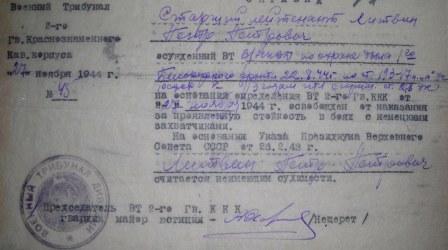 Военный Трибунал
2-го
Гв.Краснознаменного
Кав.корпуса
"27" ноября 1944 г.
№ 45
Старший лейтенант Литвин
Петр Петрович
осужденный ВТ
фронта 22.8.44г. по ст. 193-17 п. "а"
на основании определения ВТ 2-го Гв.ККК от
1944 г. освобожден от наказания
за проявленную стойкость в боях с немецкими
захватчиками.
На основании Указа Президиума Верховного
Совета СССР от 26.2.43 г.
Литвин Петр Петрович
считается неимеющим судимости.
Председатель ВТ 2-го Гв. ККК
гвардии майор юстиции - /Нецерет/
ВОЕННЫЙ ТРИБУНАЛ